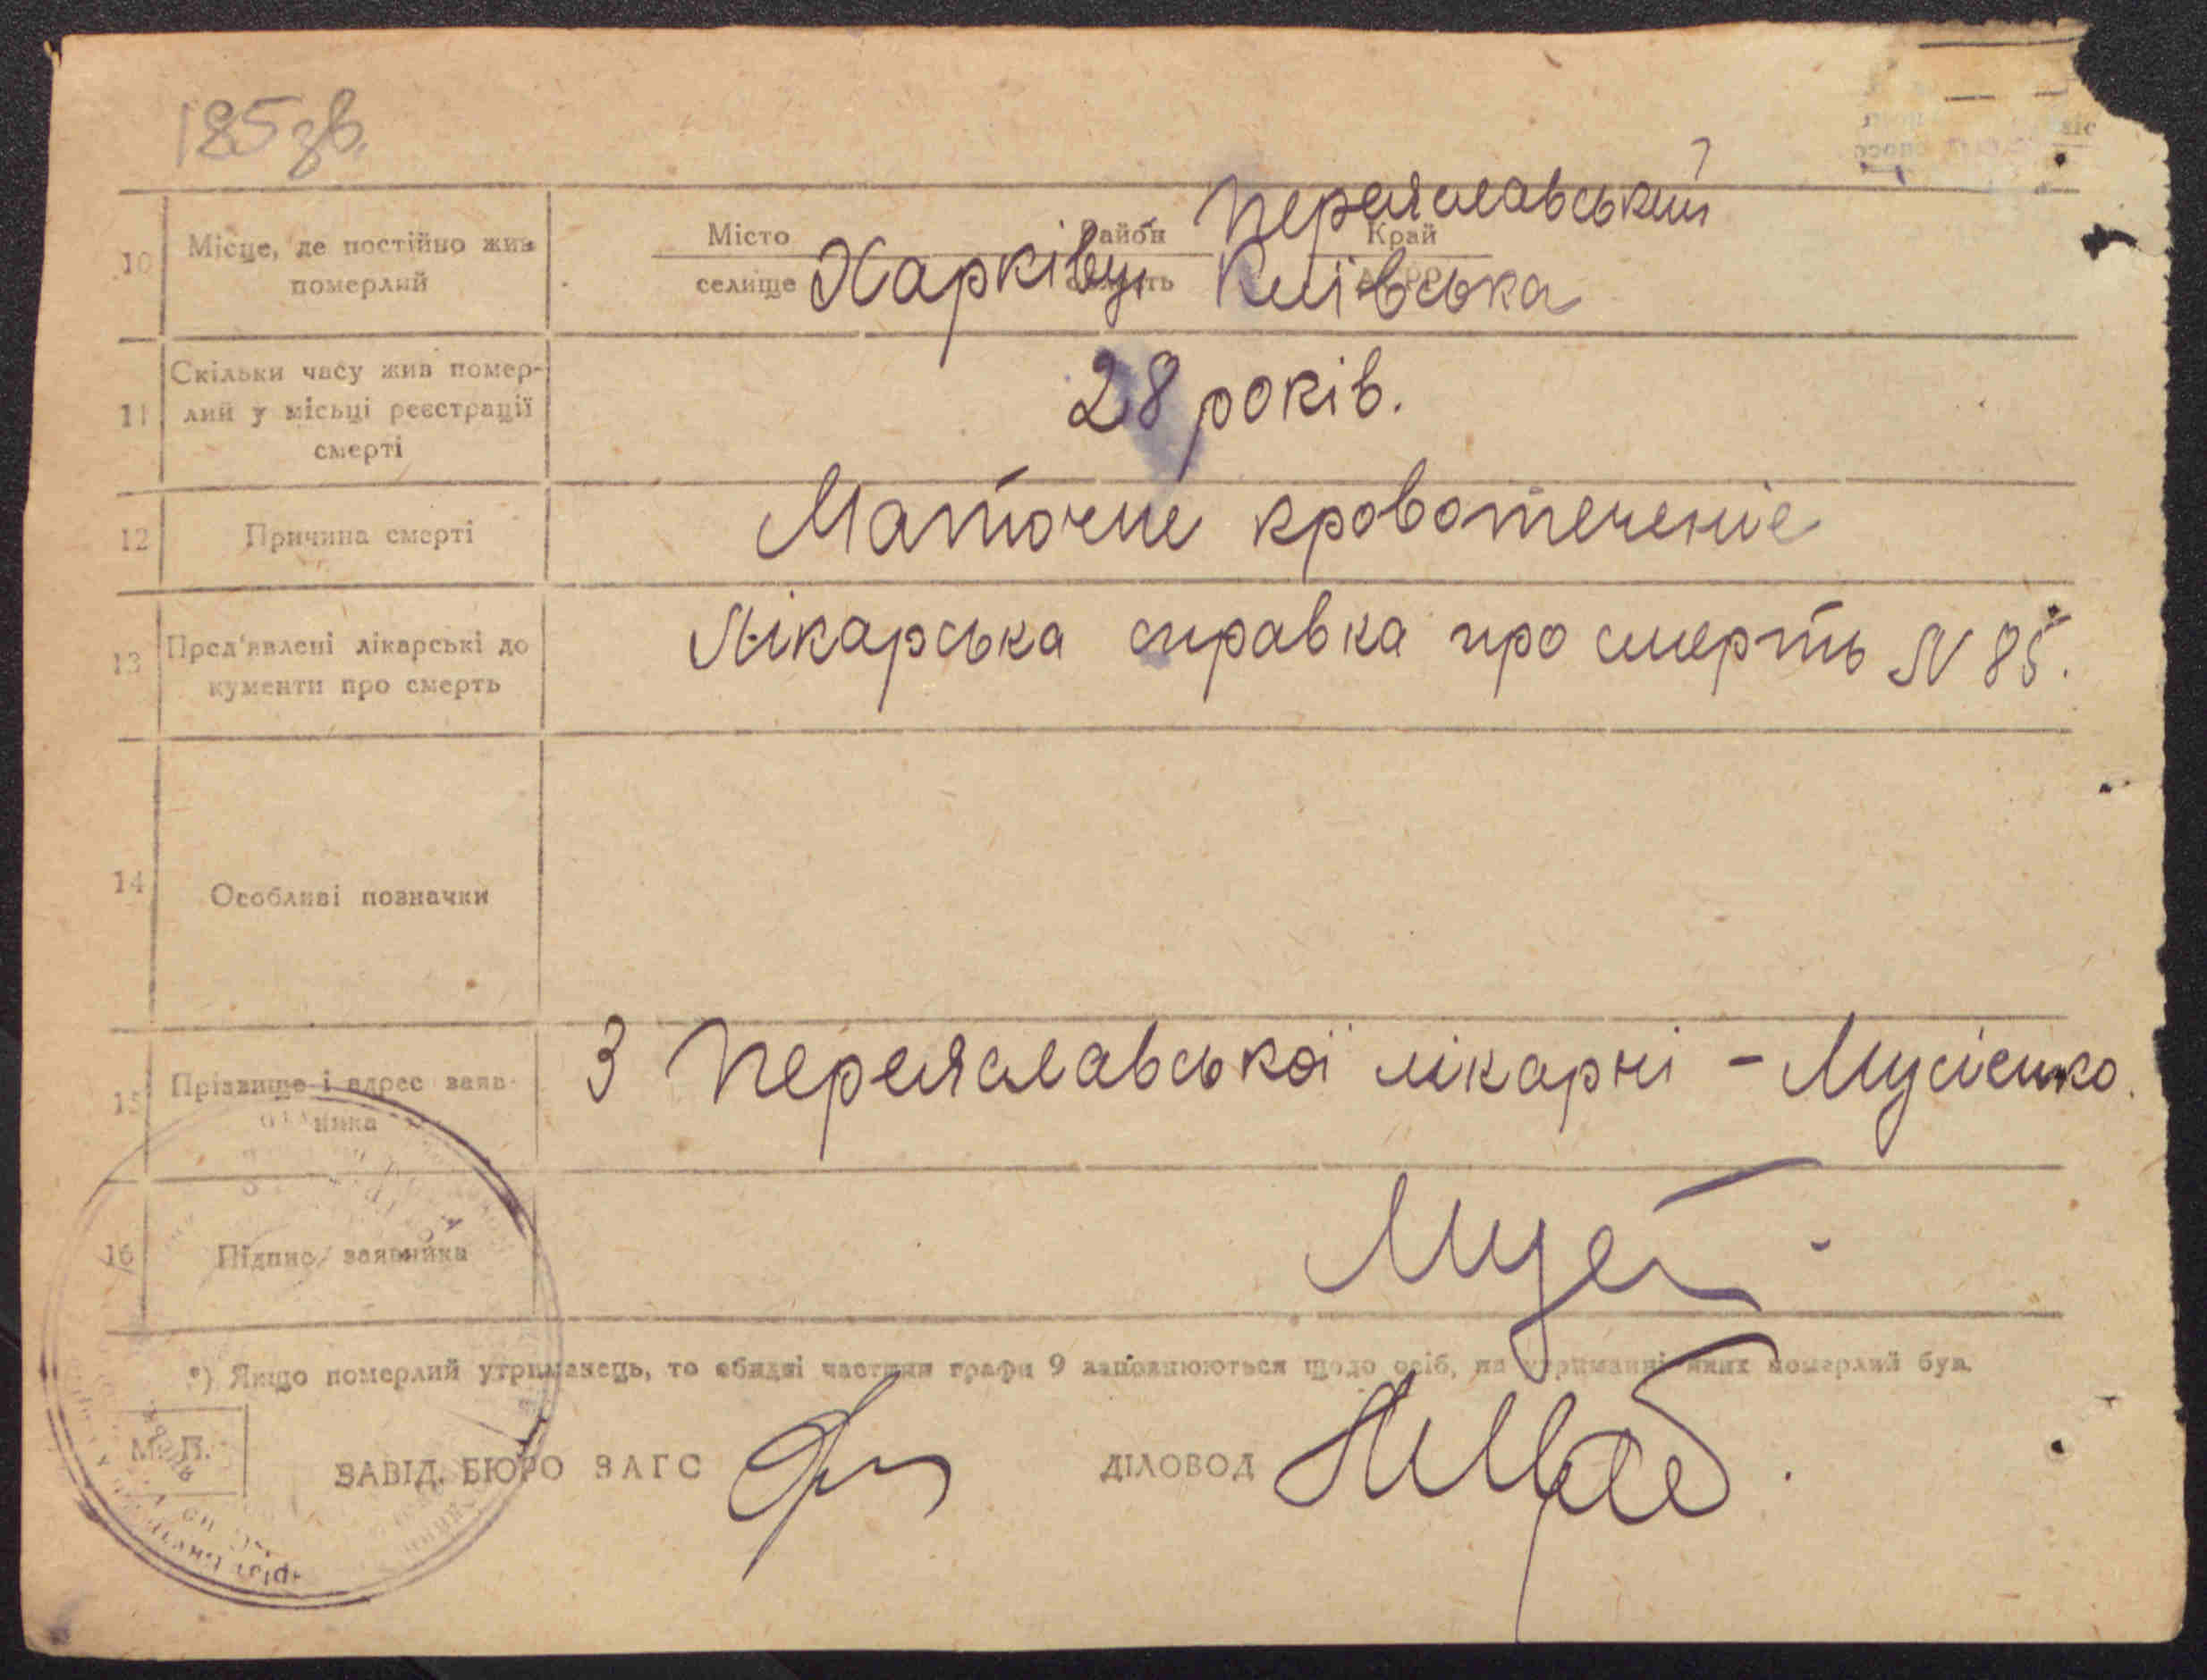 185 зв.
Переяславський
Місто Район Край
10 Місце, де постійно жив Харківці Київська
селище
померлий
Скільки часу жив помер-
11 лий у місьці реєстрації 28 років.
смерті
12 Причина смерті Маточне кровотеченіе
13 Пред'явлені лікарські до Лікарська справка про смерть N 85.
кументи про смерть
14 Особливі позначки
15 Прізвище і адрес заяв- З Переяславської лікарні - Мусієнко.
ника
16 Підпис заявника
*) Якщо померлий утриманець, то обидві частини графи 9 заповнюються щодо осіб, на утриманні яких померлий був.
М. П.
ЗАВІД. БЮРО ЗАГС ДІЛОВОД